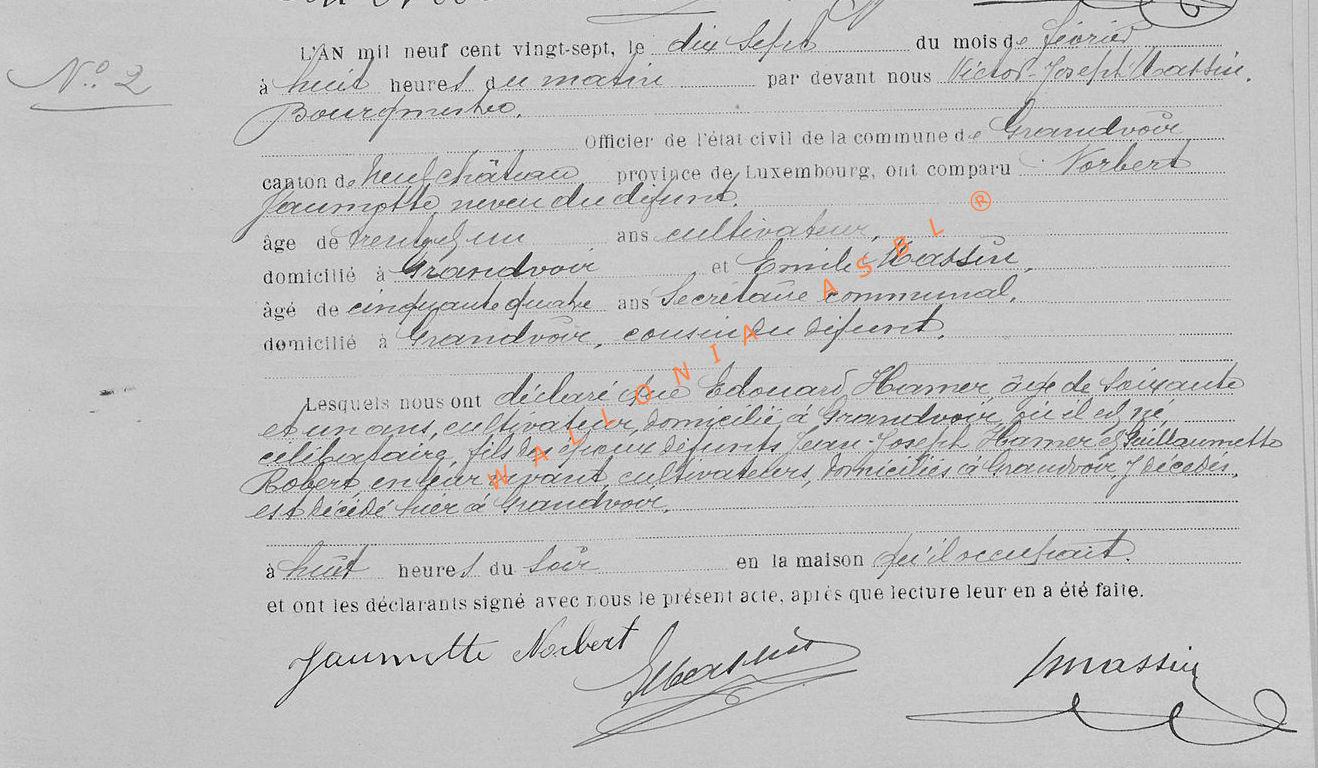 N° 2
L'AN mil neuf cent vingt-sept, le dix sept du mois de février
à huit heures du matin par devant nous Victor-Joseph Massin,
Bourgmestre,
Officier de l'état civil de la commune de Grandvoir
canton de Neufchâteau province de Luxembourg, ont comparu Norbert
Jaumotte, neveu du défunt,
âge de trente et un ans cultivateur,
domicilié à Grandvoir et Emile Massin,
âgé de cinquante quatre ans Secrétaire communal,
domicilié à Grandvoir, cousin du défunt,
Lesquels nous ont déclaré que Edouard Hamer, âgé de soixante
et un ans, cultivateur, domicilié à Grandvoir, où il est né,
célibataire, fils des époux défunts Jean-Joseph Hamer et Guillaumette
Robert en leur vivant, cultivateurs, domiciliés à Grandvoir, y décédés,
est décédé hier à Grandvoir,
à huit heures du soir en la maison qu'il occupait.
et ont les déclarants signé avec nous le présent acte, après que lecture leur en a été faite.
Jaumotte Norbert EMassin Jmassin
WALLONIA ASBL ®